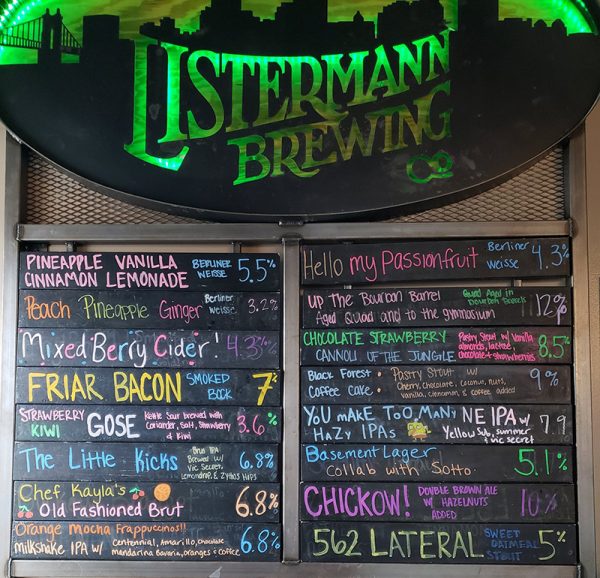 LISTERMANN
BREWING
CO
PINEAPPLE VANILLA
CINNAMON LEMONADE
BERLINER
WEISSE
5.5%
Peach Pineapple Ginger
Berliner
weisse
3.2%
Mixed Berry Cider
4.3%
FRIAR BACON
SMOKED
BOCK
7%
STRAWBERRY
KIWI
GOSE
Kettle Sour brewed with
Coriander, Salt, Strawberry
& Kiwi
3.6%
The Little Kicks
Brut IPA
Brewed w/
Vic Secret,
Lemondrop, & Zythos Hops
6.8%
Chef Kayla's
Old Fashioned Brut
6.8%
Orange mocha Frappuccinos!!
milkshake IPA w/
Centennial, Amarillo, chocolate
mandarina Bavaria, oranges & coffee
6.8%
Hello my Passionfruit
Berliner
Weisse
4.3%
Up the Bourbon Barrel
Aged Quad and to the gymnasium
Quad Aged in
Bourbon Barrels
12%
CHOCOLATE STRAWBERRY
CANNOLI OF THE JUNGLE
Pastry Stout w/ Vanilla
almonds, lactose,
chocolate & strawberries
8.5%
Black Forest
Coffee Cake
Pastry Stout w/
Cherry, chocolate, coconut,
vanilla, cinnamon, & coffee added
9%
YOU MAKE TOO MANY
HAZY IPAs
NE IPA w/
Yellow Sub, summer
& vic secret
7.9
Basement Lager
collab with Sotto
5.1%
CHICKOW!
DOUBLE BROWN ALE
W/ HAZELNUTS
ADDED
10%
562 LATERAL
SWEET
OATMEAL
STOUT
5%